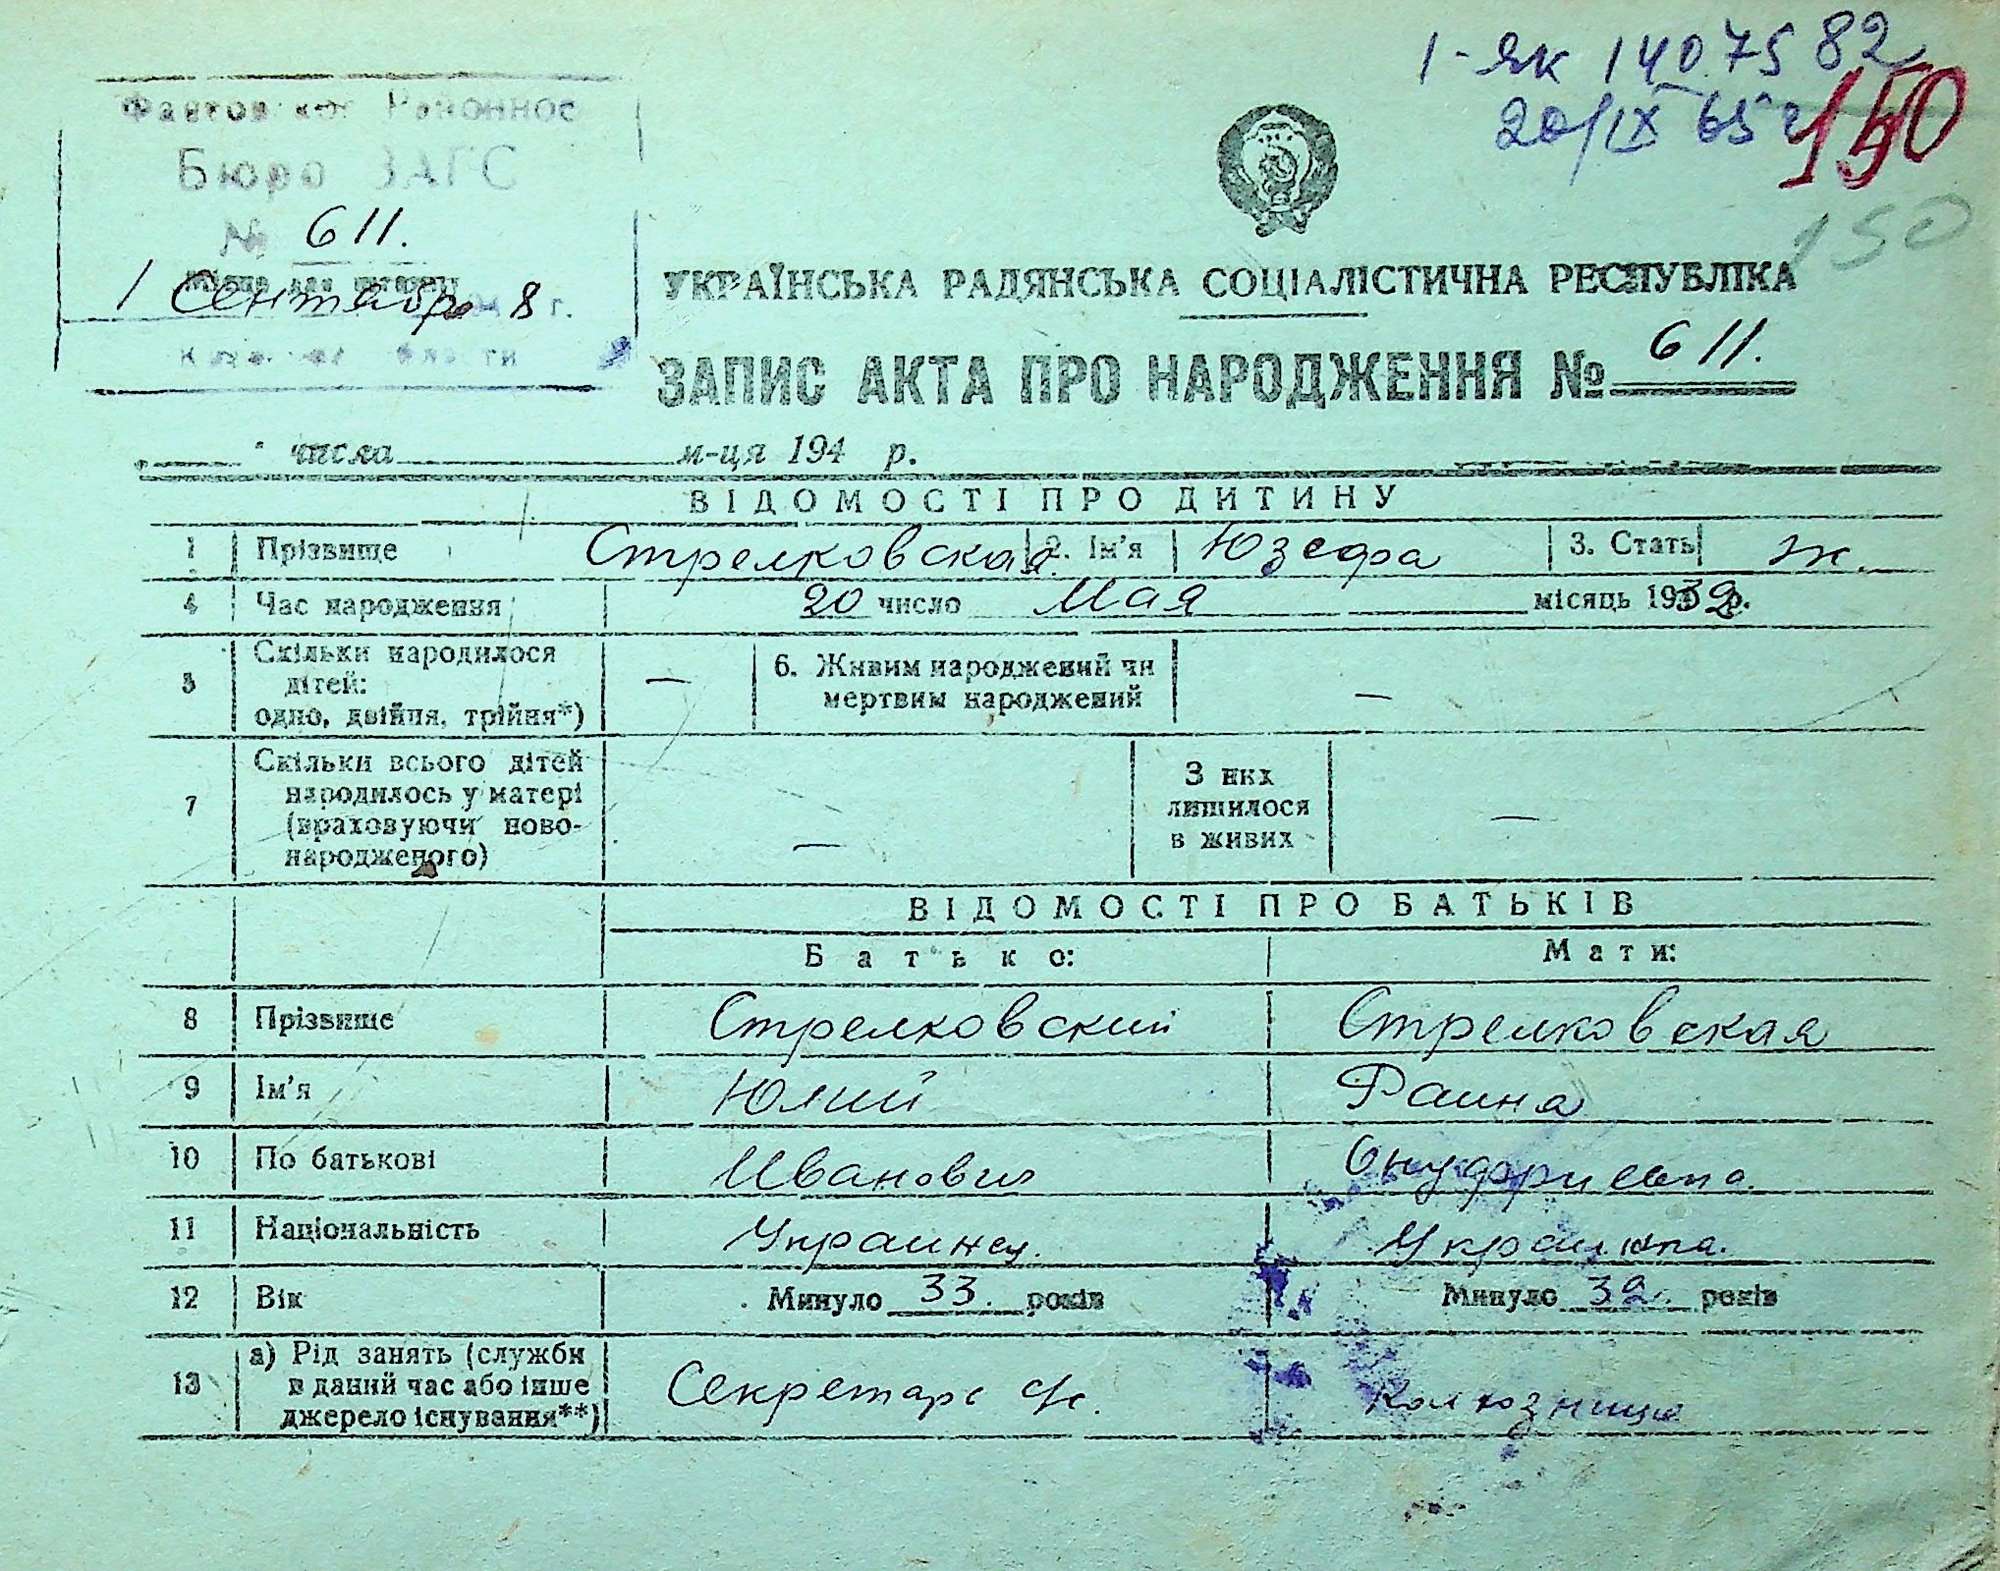 1-ЯК 1407582
20/IX 65 г
150
150
Районное
Бюро ЗАГС
№ 611.
Місце для штампу
1 Сентября 8 г.
УКРАЇНСЬКА РАДЯНСЬКА СОЦІАЛІСТИЧНА РЕСПУБЛІКА
ЗАПИС АКТА ПРО НАРОДЖЕННЯ № 611.
числа м-ця 194 р.
ВІДОМОСТІ ПРО ДИТИНУ
1 Прізвище Стрелковская 2. Ім'я Юзефа 3. Стать ж.
4 Час народження 20 число Мая місяць 1932 р.
5 Скільки народилося дітей: одно, двійня, трійня*) — 6. Живим народжений чи мертвим народжений —
7 Скільки всього дітей народилось у матері (враховуючи новонародженого) — З них лишилося в живих —
ВІДОМОСТІ ПРО БАТЬКІВ
Батько: Мати:
8 Прізвище Стрелковский Стрелковская
9 Ім'я Юлий Раина
10 По батькові Иванович Онуфриевна
11 Національність Украинец. Украинка.
12 Вік Минуло 33. років Минуло 32 років
13 а) Рід занять (служби в даний час або інше джерело існування**) Секретарь с/с. Колхозница